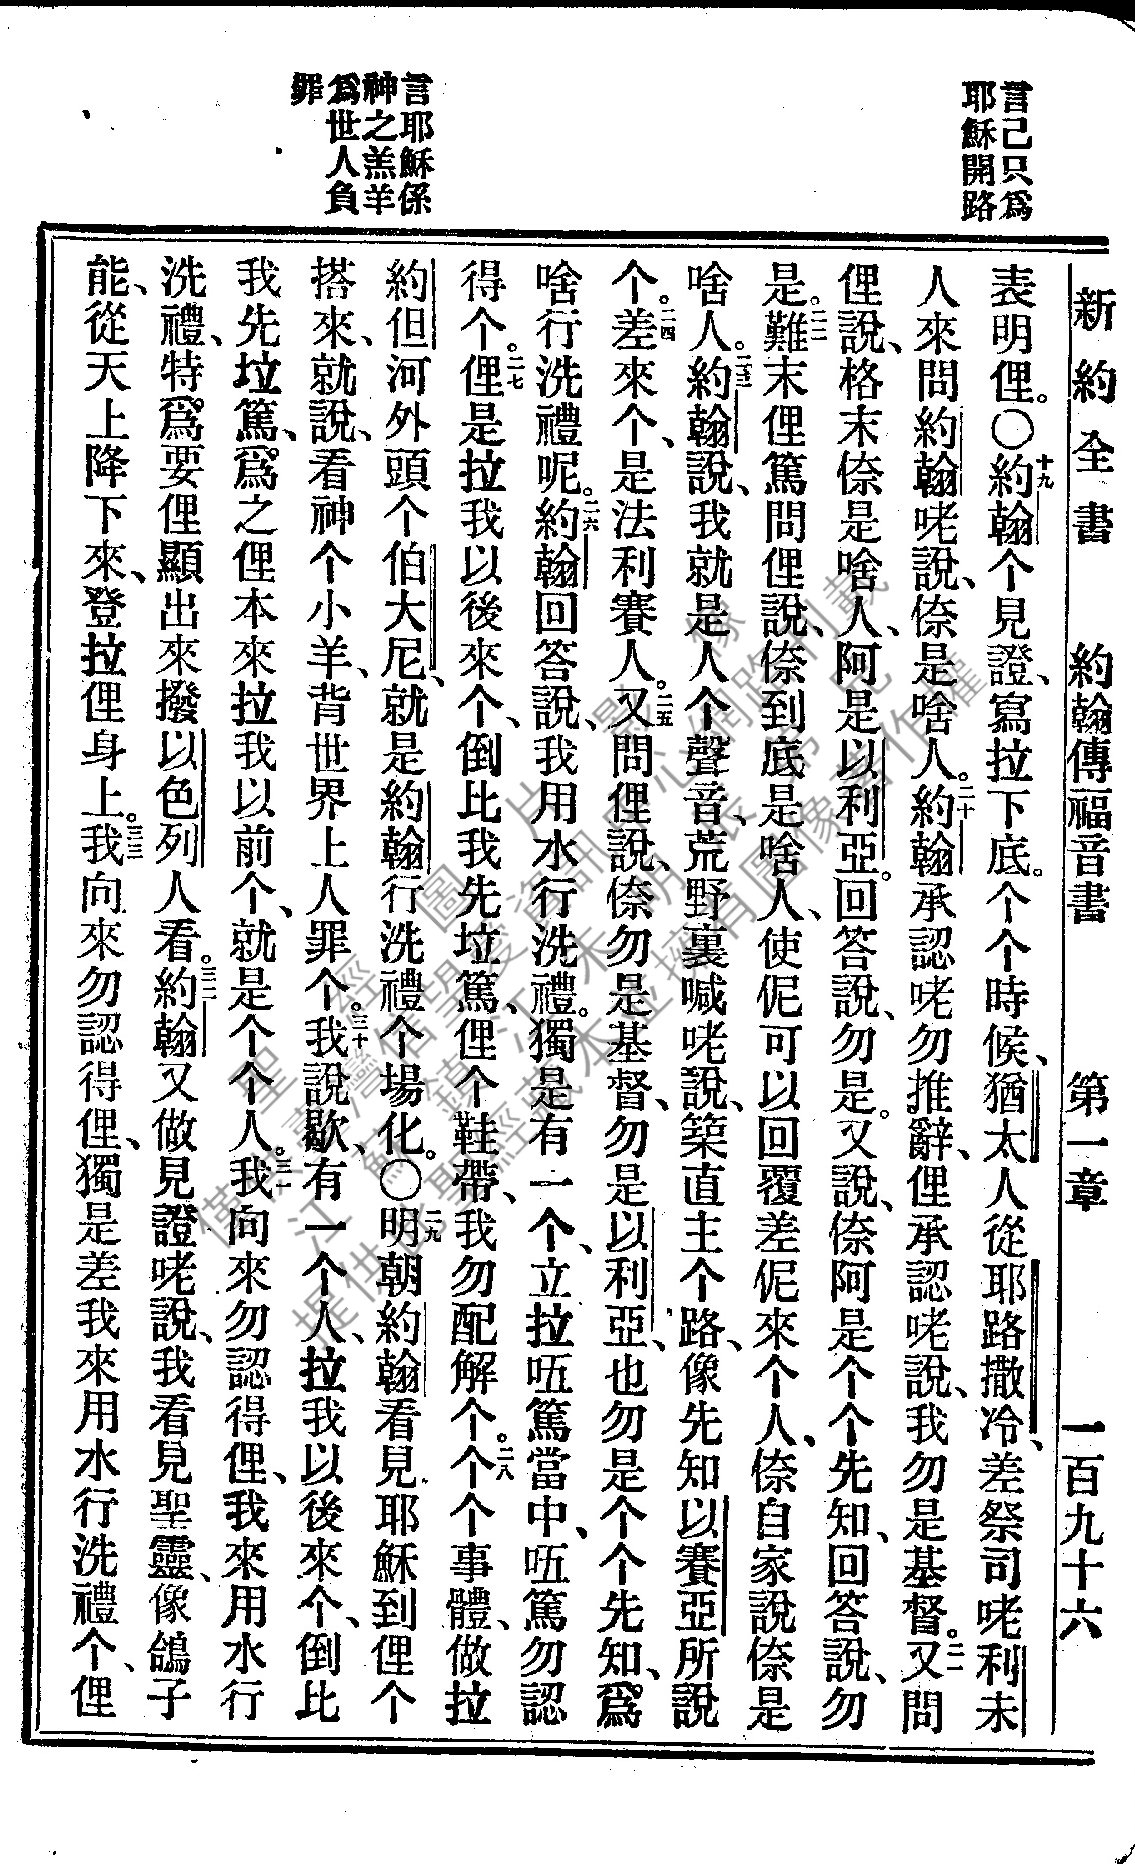 言己只爲
耶穌開路
言耶穌係
神之羔羊
爲世人負
罪
新約全書 約翰傳福音書 第一章 一百九十六
表明俚。〇十九約翰个見證、寫拉下底。个个時候、猶太人從耶路撒冷、差祭司咾利未
人來問約翰咾說、倷是啥人。二十約翰承認咾勿推辭、俚承認咾說、我勿是基督。二一又問
俚說、格末倷是啥人、阿是以利亞。回答說、勿是。又說、倷阿是个个先知、回答說、勿
是。二二難末俚篤問俚說、倷到底是啥人、使伲可以回覆差伲來个人、倷自家說倷是
啥人。二三約翰說、我就是人个聲音、荒野裏喊咾說、築直主个路、像先知以賽亞所說
个。二四差來个、是法利賽人。二五又問俚說、倷勿是基督、勿是以利亞、也勿是个个先知、爲
啥行洗禮呢。二六約翰回答說、我用水行洗禮。獨是有一个、立拉㕶篤當中、㕶篤勿認
得个。二七俚是拉我以後來个、倒比我先垃篤、俚个鞋帶、我勿配解个。二八个个事體、做拉
約但河外頭个伯大尼、就是約翰行洗禮个場化。〇二九明朝約翰看見耶穌到俚个
搭來、就說、看神个小羊、背世界上人罪个。三十我說歇、有一个人、拉我以後來个、倒比
我先垃篤、爲之俚本來拉我以前个、就是个个人。三一我向來勿認得俚、我來用水行
洗禮、特爲要俚顯出來撥以色列人看。三二約翰又做見證咾說、我看見聖靈、像鴿子
能、從天上降下來、登拉俚身上。三三我向來勿認得俚、獨是差我來用水行洗禮个、俚